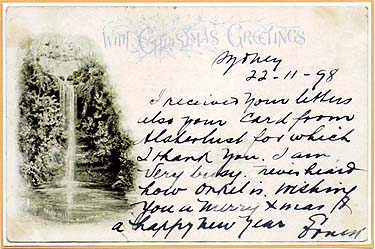 With Christmas Greetings
Sydney
22-11-98
I received your letters
also your card from
for which
I thank you. I am
very busy. never heard
how Onkel is. Wishing
you a merry Xmas &
a happy new year